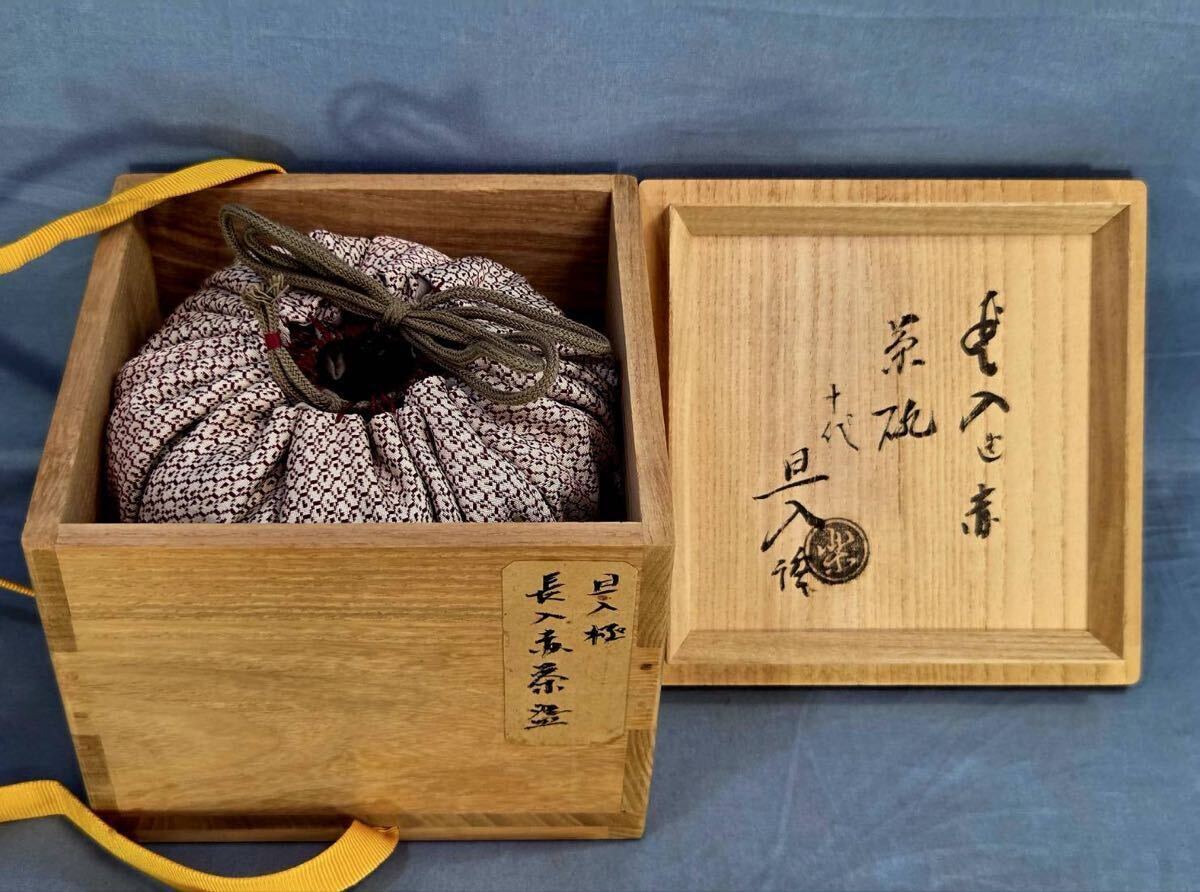 長入造赤
茶碗
十代
旦入證
樂
旦入極
長入赤茶盌